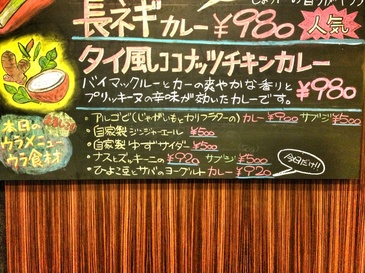 長ネギカレー ¥980 人気
タイ風ココナッツチキンカレー
バイマックルーとカーの爽やかな香りと
プリッキーヌの辛味が効いたカレーです。 ¥980
本日の
ウラメニュー
ウラ食材
・アルゴビ(じゃがいもとカリフラワーの)カレー ¥900 サブジ ¥500
・自家製ジンジャーエール ¥500
・自家製ゆずサイダー ¥500
・ナスとズッキーニの ¥920 サブジ ¥500
・ひよこ豆とサバのヨーグルトカレー ¥920
今日だけ!!